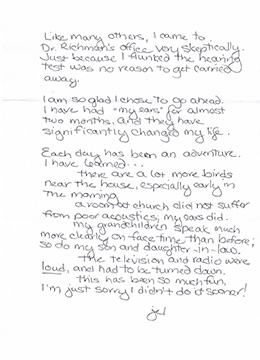 Like many others, I came to
Dr. Richman's office very skeptically.
Just because I flunked the hearing
test was no reason to get carried
away.
I am so glad I chose to go ahead.
I have had "my ears" for almost
two months, and they have
significantly changed my life.
Each day has been an adventure.
I have learned...
there are a lot more birds
near the house, especially early in
the morning
a room at church did not suffer
from poor acoustics; my ears did.
my grandchildren speak much
more clearly on face time than before;
so do my son and daughter-in-law.
the television and radio were
loud, and had to be turned down.
this has been so much fun,
I'm just sorry I didn't do it sooner!